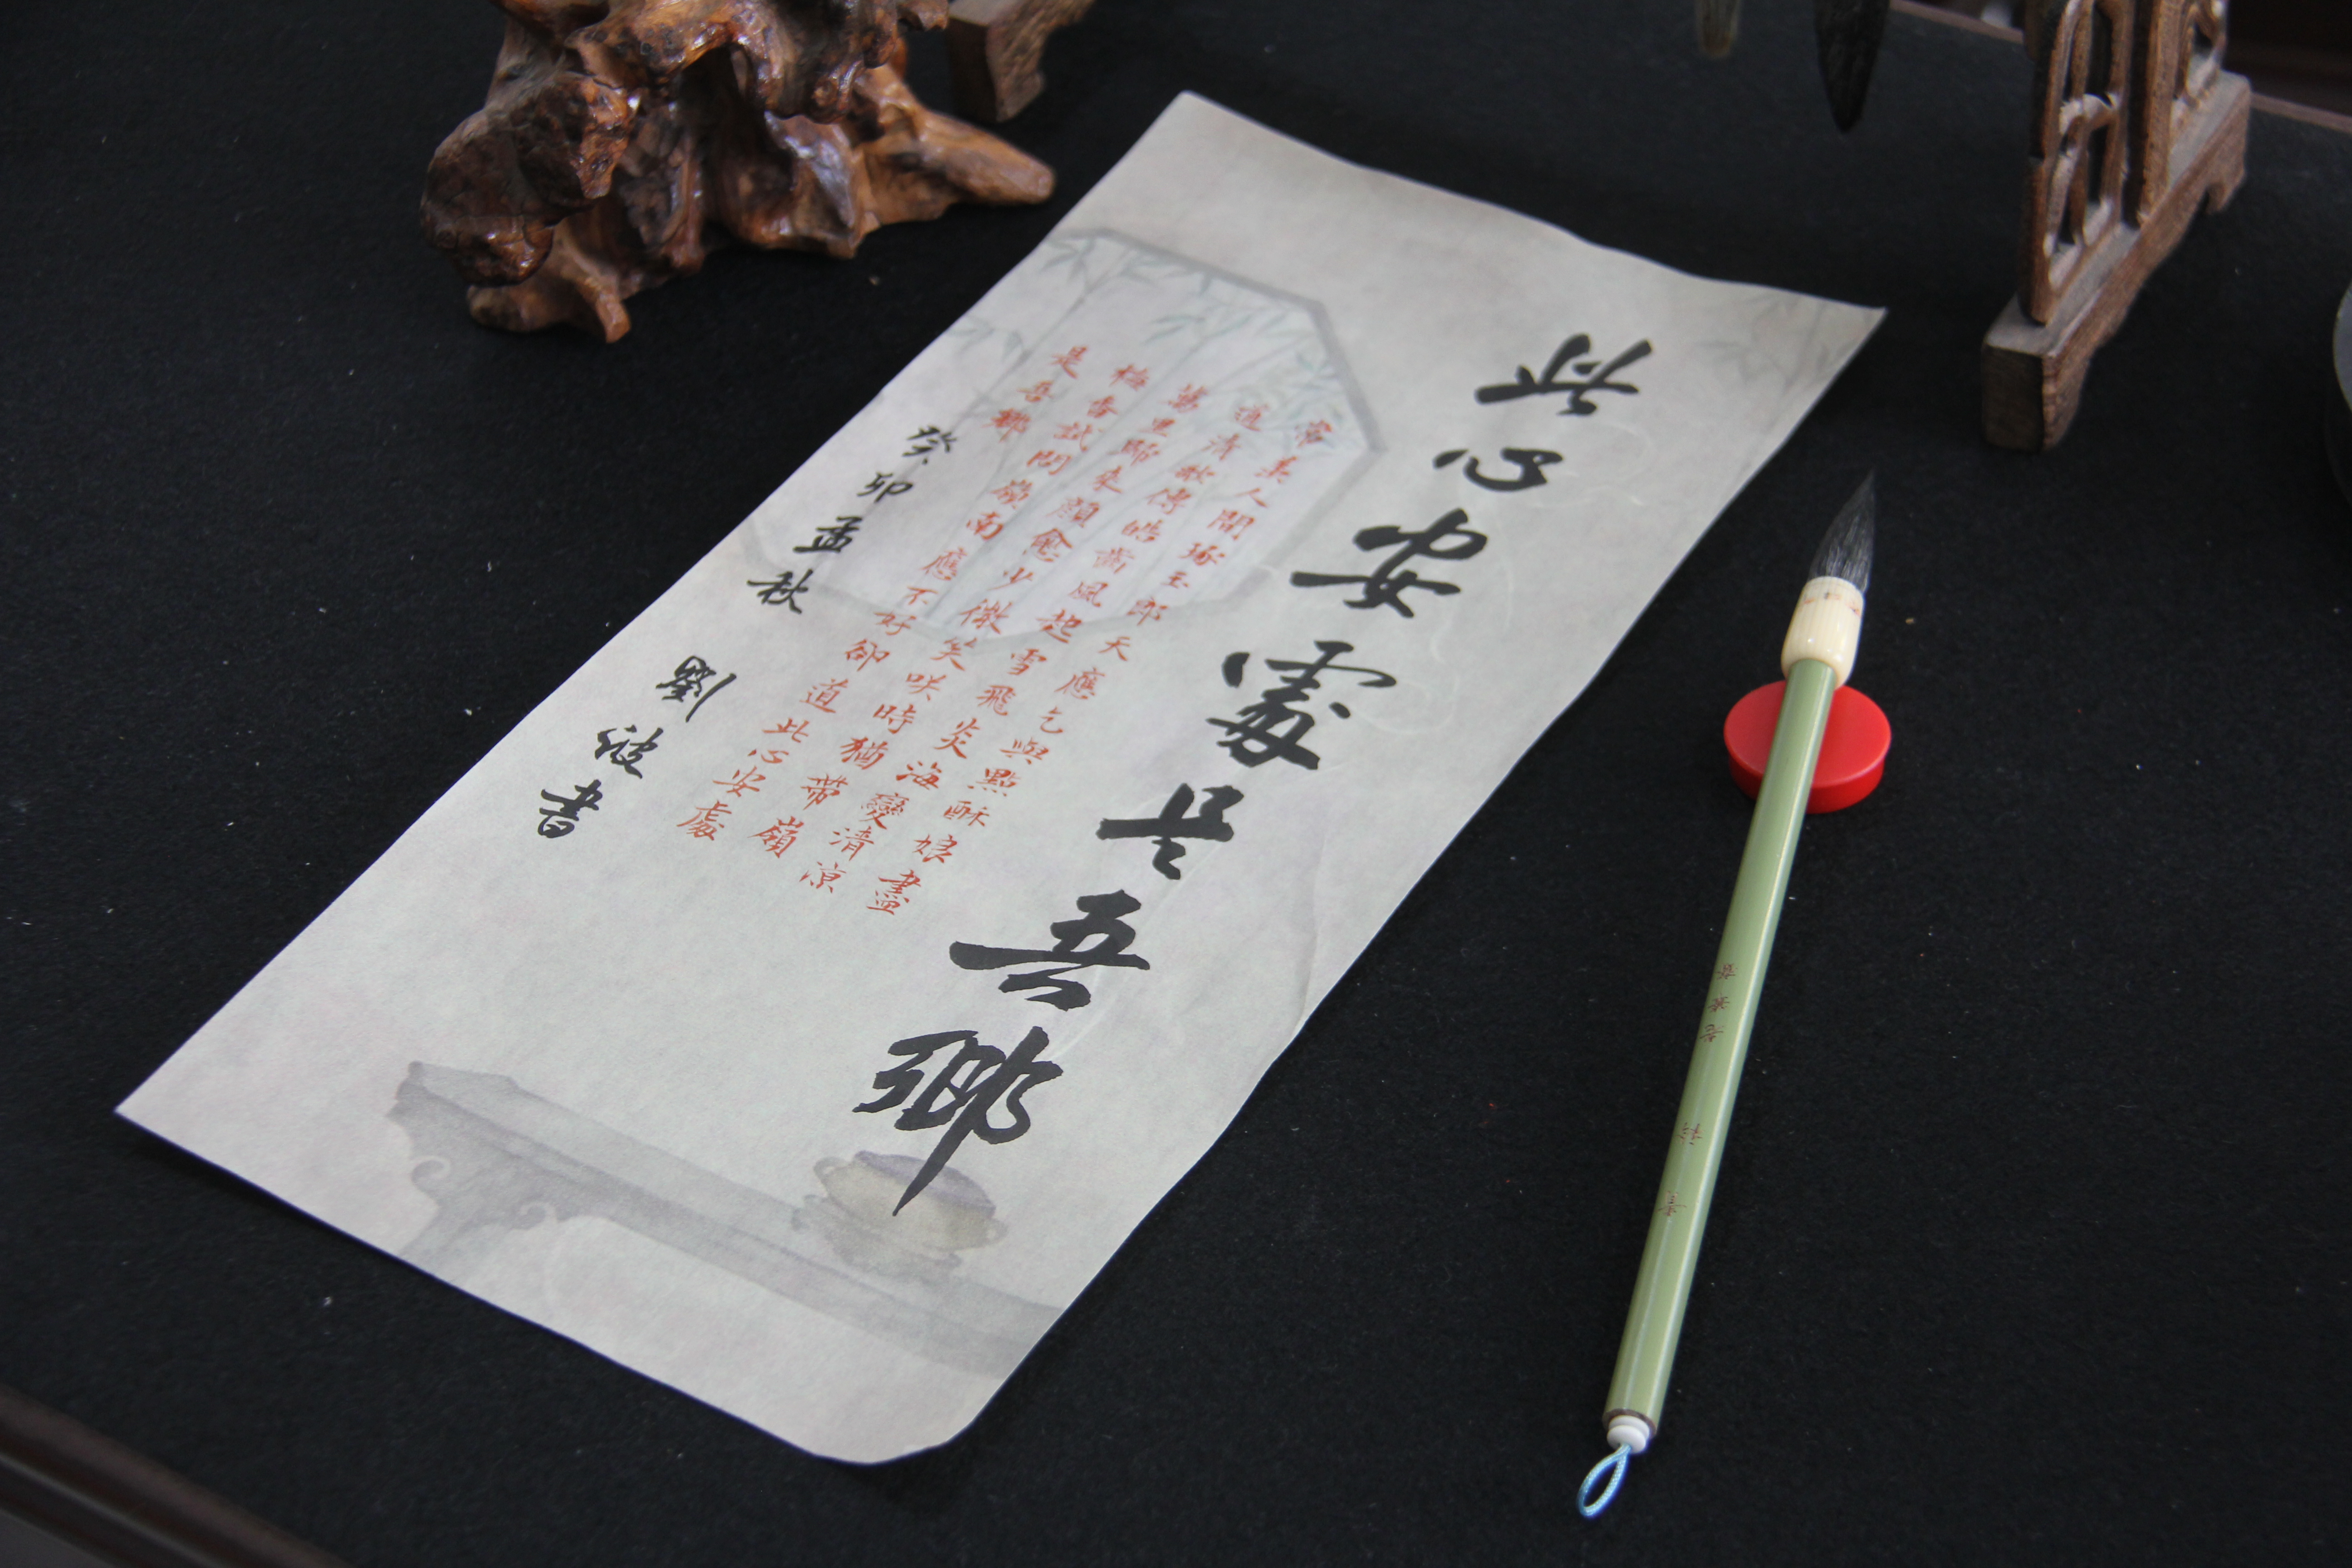 此心安處是吾鄉
常羨人間琢玉郎天應乞與點酥娘盡
道清歌傳皓齒風起雪飛炎海變清涼
萬里歸來顏愈少微笑咲時猶帶嶺
梅香試問嶺南應不好卻道此心安處
是吾鄉
癸卯孟秋 劉書